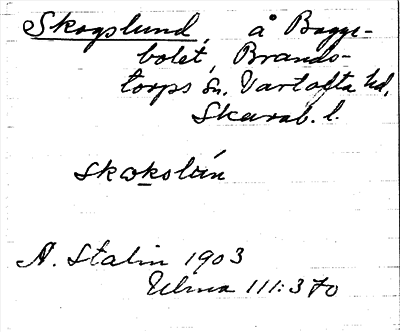 Skogslund, å Bagge-
bolet, Brands-
torps sn. Vartofta hd,
Skarab. l.
skωkslún
A. Stalin 1903
Ulma 111:370